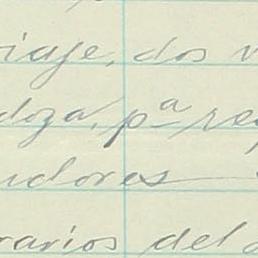 iaje, dos v
doza, pª re
dores
rarios del